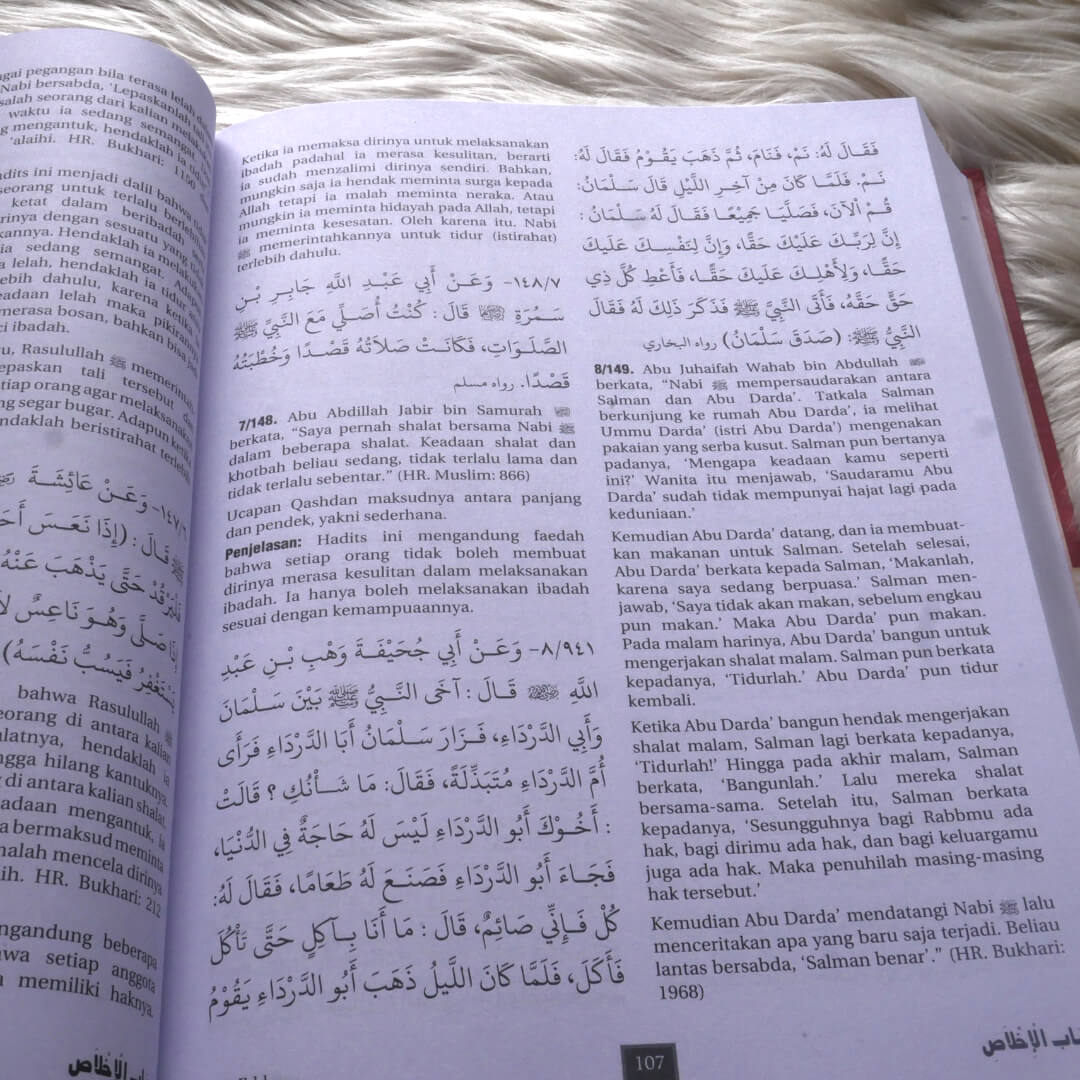 gai pegangan bila terasa lelah
Nabi bersabda, ‘Lepaskanlah tali
salah seorang dari kalian melakukan
waktu ia sedang semangat.
g mengantuk, hendaklah ia tidur
‘alaihi. HR. Bukhari: 1150
adits ini menjadi dalil bahwa tid
seorang untuk terlalu berlebihan
ketat dalam beribadah
irinya dengan sesuatu yang
kannya. Hendaklah ia melakukan
ia sedang semangat. Adapun
a lelah, hendaklah ia tidur
lebih dahulu, karena ketika
eadaan lelah maka pikirannya
merasa bosan, bahkan bisa jadi
ci ibadah.
u, Rasulullah ﷺ memerintah-
epaskan tali tersebut
tiap orang agar melaksanakan
ng segar bugar. Adapun ketika
ndaklah beristirahat terlebih
١٤٧/٦- وَعَنْ عَائِشَةَ
ﷺ قَالَ: (إِذَا نَعَسَ أَحَ
فَلْيَرْقُدْ حَتَّى يَذْهَبَ عَنْهُ
إِذَا صَلَّى وَهُوَ نَاعِسٌ لَا
يَسْتَغْفِرُ فَيَسُبُّ نَفْسَهُ)
bahwa Rasulullah ﷺ
eorang di antara kalian
alatnya, hendaklah ia
gga hilang kantuknya.
di antara kalian shalat,
adaan mengantuk, ia
a bermaksud meminta
malah mencela dirinya
ih. HR. Bukhari: 212
ngandung beberapa
wa setiap anggota
memiliki haknya.
اب الْإِخْلَاصِ
Ketika ia memaksa dirinya untuk melaksanakan
ibadah padahal ia merasa kesulitan, berarti
ia sudah menzalimi dirinya sendiri. Bahkan,
mungkin saja ia hendak meminta surga kepada
Allah tetapi ia malah meminta neraka. Atau
mungkin ia meminta hidayah pada Allah, tetapi
ia meminta kesesatan. Oleh karena itu. Nabi
ﷺ memerintahkannya untuk tidur (istirahat)
terlebih dahulu.
١٤٨/٧- وَعَنْ أَبِي عَبْدِ اللَّهِ جَابِرِ بْنِ
سَمُرَةِ ﷺ قَالَ: كُنْتُ أُصَلِّي مَعَ النَّبِيِّ ﷺ
الصَّلَوَاتِ، فَكَانَتْ صَلَاتُهُ قَصْدًا وَخُطْبَتُهُ
قَصْدًا. رواه مسلم
7/148. Abu Abdillah Jabir bin Samurah
berkata, “Saya pernah shalat bersama Nabi ﷺ
dalam beberapa shalat. Keadaan shalat dan
khotbah beliau sedang, tidak terlalu lama dan
tidak terlalu sebentar.” (HR. Muslim: 866)
Ucapan Qashdan maksudnya antara panjang
dan pendek, yakni sederhana.
Penjelasan: Hadits ini mengandung faedah
bahwa setiap orang tidak boleh membuat
dirinya merasa kesulitan dalam melaksanakan
ibadah. Ia hanya boleh melaksanakan ibadah
sesuai dengan kemampuaannya.
٨/٩٤١- وَعَنْ أَبِي جُحَيْفَةَ وَهْبِ بْنِ عَبْدِ
اللَّهِ قَالَ: آخَى النَّبِيُّ ﷺ بَيْنَ سَلْمَانَ
وَأَبِي الدَّرْدَاءِ، فَزَارَ سَلْمَانُ أَبَا الدَّرْدَاءِ فَرَأَى
أُمَّ الدَّرْدَاءِ مُتَبَذِّلَةً، فَقَالَ: مَا شَأْنُكِ ؟ قَالَتْ
: أَخُوْكَ أَبُو الدَّرْدَاءِ لَيْسَ لَهُ حَاجَةٌ فِي الدُّنْيَا،
فَجَاءَ أَبُو الدَّرْدَاءِ فَصَنَعَ لَهُ طَعَامًا، فَقَالَ لَهُ:
كُلْ فَإِنِّي صَائِمٌ، قَالَ: مَا أَنَا بِآكِلٍ حَتَّى تَأْكُلَ
فَأَكَلَ، فَلَمَّا كَانَ اللَّيلُ ذَهَبَ أَبُو الدَّرْدَاءِ يَقُوْمُ
فَقَالَ لَهُ: نَمْ، فَنَامَ، ثُمَّ ذَهَبَ يَقُوْمُ فَقَالَ لَهُ:
نَمْ. فَلَمَّا كَانَ مِنْ آخِرِ اللَّيْلِ قَالَ سَلْمَانُ:
قُمْ الْآنَ، فَصَلَّيَا جَمِيْعًا فَقَالَ لَهُ سَلْمَانُ :
إِنَّ لِرَبِّكَ عَلَيْكَ حَقًّا، وَإِنَّ لِنَفْسِكَ عَلَيْكَ
حَقًّا، وَلِأَهْلِكَ عَلَيكَ حَقًّا، فَأَعْطِ كُلَّ ذِي
حَقٍّ حَقَّهُ، فَأَتَى النَّبِيَّ ﷺ فَذَكَرَ ذَلِكَ لَهُ فَقَالَ
النَّبِيُّ ﷺ: (صَدَقَ سَلْمَانُ) رواه البخاري
8/149. Abu Juhaifah Wahab bin Abdullah
berkata, “Nabi ﷺ mempersaudarakan antara
Salman dan Abu Darda’. Tatkala Salman
berkunjung ke rumah Abu Darda’, ia melihat
Ummu Darda’ (istri Abu Darda’) mengenakan
pakaian yang serba kusut. Salman pun bertanya
padanya, ‘Mengapa keadaan kamu seperti
ini?’ Wanita itu menjawab, ‘Saudaramu Abu
Darda’ sudah tidak mempunyai hajat lagi pada
keduniaan.’
Kemudian Abu Darda’ datang, dan ia membuat-
kan makanan untuk Salman. Setelah selesai,
Abu Darda’ berkata kepada Salman, ‘Makanlah,
karena saya sedang berpuasa.’ Salman men-
jawab, ‘Saya tidak akan makan, sebelum engkau
pun makan.’ Maka Abu Darda’ pun makan.
Pada malam harinya, Abu Darda’ bangun untuk
mengerjakan shalat malam. Salman pun berkata
kepadanya, ‘Tidurlah.’ Abu Darda’ pun tidur
kembali.
Ketika Abu Darda’ bangun hendak mengerjakan
shalat malam, Salman lagi berkata kepadanya,
‘Tidurlah!’ Hingga pada akhir malam, Salman
berkata, ‘Bangunlah.’ Lalu mereka shalat
bersama-sama. Setelah itu, Salman berkata
kepadanya, ‘Sesungguhnya bagi Rabbmu ada
hak, bagi dirimu ada hak, dan bagi keluargamu
juga ada hak. Maka penuhilah masing-masing
hak tersebut.’
Kemudian Abu Darda’ mendatangi Nabi ﷺ lalu
menceritakan apa yang baru saja terjadi. Beliau
lantas bersabda, ‘Salman benar’.” (HR. Bukhari:
1968)
107
اب الْإِخْلَاصِ